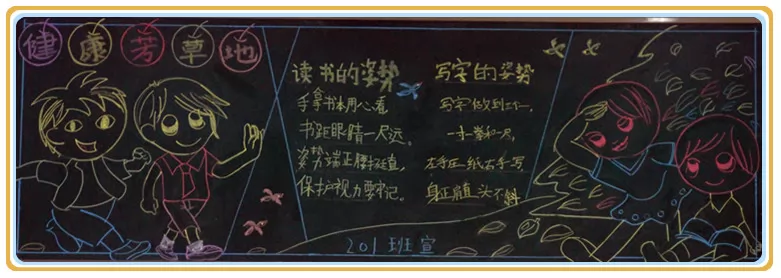 健康芳草地
读书的姿势
手拿书本用心看
书距眼睛一尺远。
姿势端正腰挺直,
保护视力要牢记。
写字的姿势
写字做到三个一,
一寸一拳和一尺,
左手压纸右手写,
身正肩直头不斜
201班宣